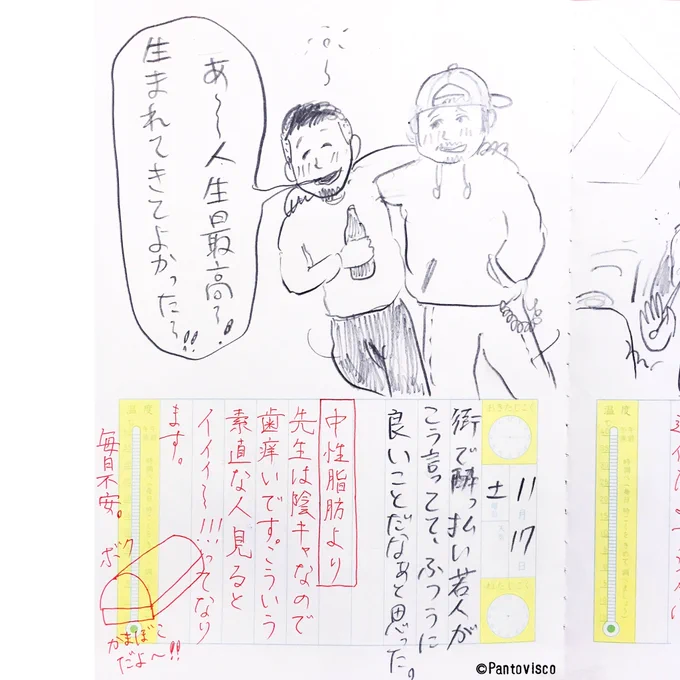 あ〜〜人生最高〜!
生まれてきてよかった〜!!
おきたじこく
11月17日
土曜日
ねたじこく
街で酔っ払い若人が
こう言ってて、ふつうに
良いことだなぁと思った。
中性脂肪より
先生は陰キャなので
歯痒いです。こういう
素直な人見ると
イィィ〜!!!ってなり
ます。
温度
毎日不安。
ボク
かまぼこ
だよ〜!!
温度
©Pantovisco